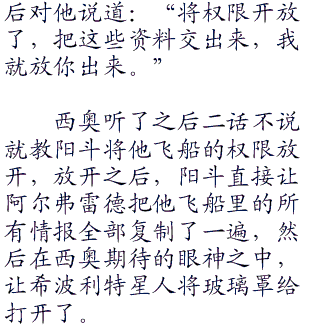 后对他说道：“将权限开放
了，把这些资料交出来，我
就放你出来。”
西奥听了之后二话不说
就教阳斗将他飞船的权限放
开，放开之后，阳斗直接让
阿尔弗雷德把他飞船里的所
有情报全部复制了一遍，然
后在西奥期待的眼神之中，
让希波利特星人将玻璃罩给
打开了。